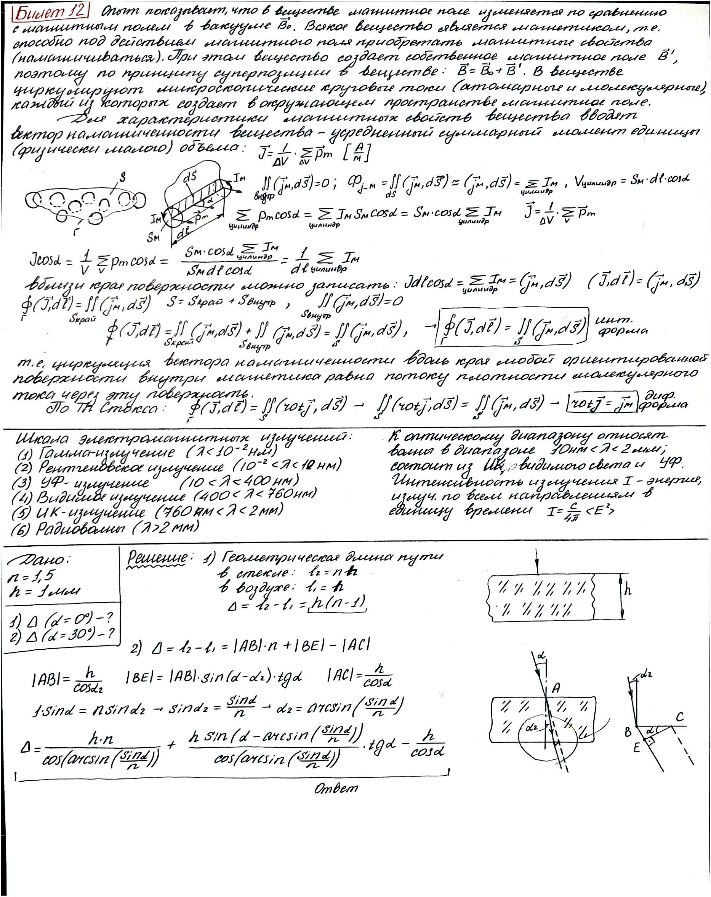 Билет 12 Опыт показывает, что в веществе магнитное поле изменяется по сравнению
с магнитным полем в вакууме B⃗₀. Всякое вещество является магнетиком, т.е.
способно под действием магнитного поля приобретать магнитные свойства
(намагничиваться). При этом вещество создает собственное магнитное поле B⃗',
поэтому по принципу суперпозиции в веществе: B⃗=B⃗₀+B⃗'. В веществе
циркулируют микроскопические круговые токи (атомарные и молекулярные),
каждый из которых создает в окружающем пространстве магнитное поле.
Для характеристики магнитных свойств вещества вводят
вектор намагниченности вещества – усредненный суммарный момент единицы
(физически малого) объема: J⃗=1/ΔV·∑_ΔV p⃗m [A/м]
S
Г
dS
Iм
Iм
α
p⃗m
Sм
dl
∬_внутр(j⃗м,dS⃗)=0; Φ_j-м=∬_dS(j⃗м,dS⃗)≈(j⃗м,dS⃗)=∑_цилиндр Iм, Vцилиндр=Sм·dl·cosα
∑_цилиндр pmcosα=∑_цилиндр IмSмcosα=Sм·cosα∑_цилиндр Iм J⃗=1/ΔV·∑p⃗m
Jcosα=1/V ∑_V pmcosα=(Sм·cosα∑_цилиндр Iм)/(Sмdlcosα)=1/dl ∑_цилиндр Iм
вблизи края поверхности можно записать: Jdlcosα=∑_цилиндр Iм=(j⃗м,dS⃗) (J⃗,dl⃗)=(j⃗м,dS⃗)
∮_Г(J⃗,dl⃗)=∬_Sкрай(j⃗м,dS⃗) S=Sкрай+Sвнутр, ∬_Sвнутр(j⃗м,dS⃗)=0
∮_Г(J⃗,dl⃗)=∬_Sкрай(j⃗м,dS⃗)+∬_Sвнутр(j⃗м,dS⃗)=∬_S(j⃗м,dS⃗), → ∮_Г(J⃗,dl⃗)=∬_S(j⃗м,dS⃗) инт. форма
т.е. циркуляция вектора намагниченности вдоль края любой ориентированной
поверхности внутри магнетика равна потоку плотности молекулярного
тока через эту поверхность.
По ТН Стокса: ∮_Г(J⃗,dl⃗)=∬_S(rotj⃗,dS⃗) → ∬_S(rotj⃗,dS⃗)=∬_S(j⃗м,dS⃗) → rotj⃗=j⃗м диф. форма
Шкала электромагнитных излучений:
(1) Гамма-излучение (λ<10⁻²нм)
(2) Рентгеновское излучение (10⁻²<λ<10нм)
(3) УФ-излучение (10<λ<400нм)
(4) Видимое излучение (400<λ<760нм)
(5) ИК-излучение (760нм<λ<2мм)
(6) Радиоволны (λ>2мм)
К оптическому диапазону относят
волны в диапазоне 10нм<λ<2мм;
состоит из ИК, видимого света и УФ.
Интенсивность излучения I – энергия,
излуч. по всем направлениям в
единицу времени I=c/4π <E²>
Дано:
n=1,5
h=1мм
1) Δ(α=0°)–?
2) Δ(α=30°)–?
Решение: 1) Геометрическая длина пути
в стекле: l₂=nh
в воздухе: l₁=h
Δ=l₂-l₁=h(n-1)
2) Δ=l₂-l₁=|AB|·n+|BE|-|AC|
|AB|=h/cosα₂ |BE|=|AB|·sin(α-α₂)·tgα |AC|=h/cosα
1·sinα=nsinα₂→sinα₂=sinα/n→α₂=arcsin(sinα/n)
Δ=h·n/cos(arcsin(sinα/n))+h sin(α-arcsin(sinα/n))/cos(arcsin(sinα/n))·tgα-h/cosα
Ответ
h
α
A
α₂
α₂
B
C
α
E